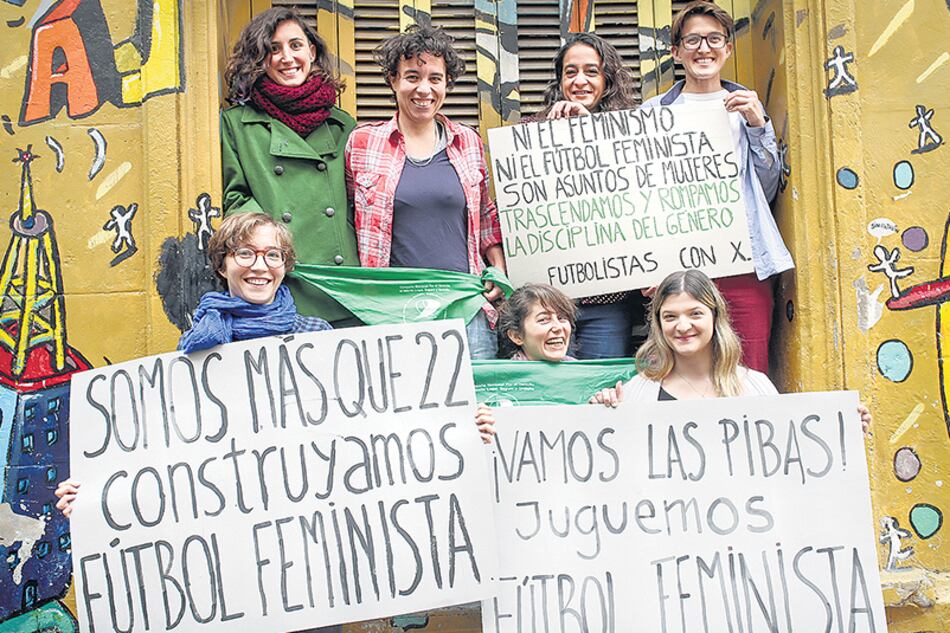 NI EL FEMINISMO
NI EL FÚTBOL FEMINISTA
SON ASUNTOS DE MUJERES
TRASCENDAMOS Y ROMPAMOS
LA DISCIPLINA DEL GENERO
FUTBOLISTAS CON X.
SOMOS MÁS QUE 22
construyamos
FÚTBOL FEMINISTA
¡VAMOS LAS PIBAS!
Juguemos
FÚTBOL FEMINISTA